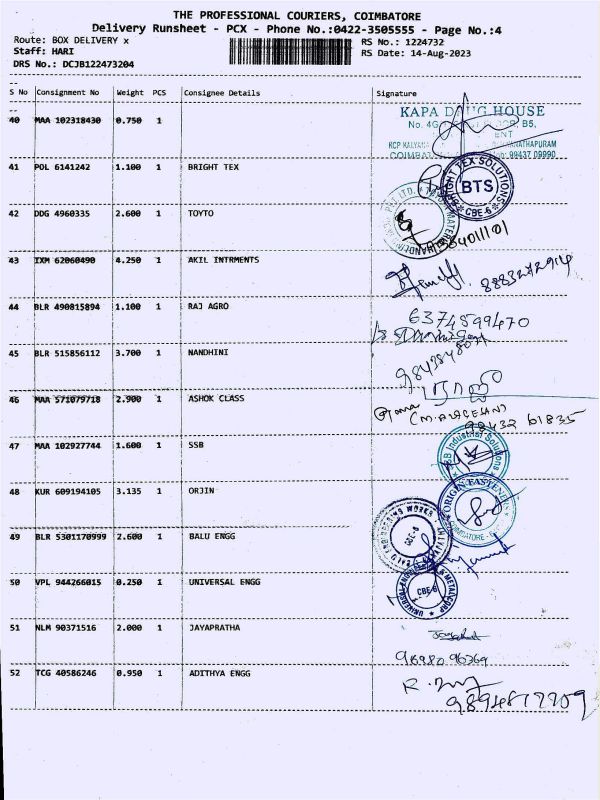 THE PROFESSIONAL COURIERS, COIMBATORE
Delivery Runsheet - PCX - Phone No.:0422-3505555 - Page No.:4
Route: BOX DELIVERY x RS No.: 1224732
Staff: HARI RS Date: 14-Aug-2023
DRS No.: DCJB122473204
S No Consignment No Weight PCS Consignee Details Signature
40 MAA 102318430 0.750 1
KAPA DRUG HOUSE
No. 4G B5,
KCP KALYANA
COIMBAT 99437 09990
41 POL 6141242 1.100 1 BRIGHT TEX
BRIGHT TEX SOLUTIONS BTS CBE-6
42 DDG 4960335 2.600 1 TOYTO
43 IXM 62060490 4.250 1 AKIL INTRMENTS
8883272914
44 BLR 490815894 1.100 1 RAJ AGRO
6374599470
45 BLR 515856112 3.700 1 NANDHINI
46 MAA 571079718 2.900 1 ASHOK CLASS
(M.ALAGESAN)
98432 61835
47 MAA 102927744 1.600 1 SSB
SSB Industrial Solutions
48 KUR 609194105 3.135 1 ORJIN
ORIGIN FASTENERS COIMBATORE
49 BLR 5301170999 2.600 1 BALU ENGG
ENGINEERING WORKS CBE-6
50 VPL 944266015 0.250 1 UNIVERSAL ENGG
UNIVERSAL METALCORP CBE-6
51 NLM 90371516 2.000 1 JAYAPRATHA
96980 96369
52 TCG 40586246 0.950 1 ADITHYA ENGG
9894877709